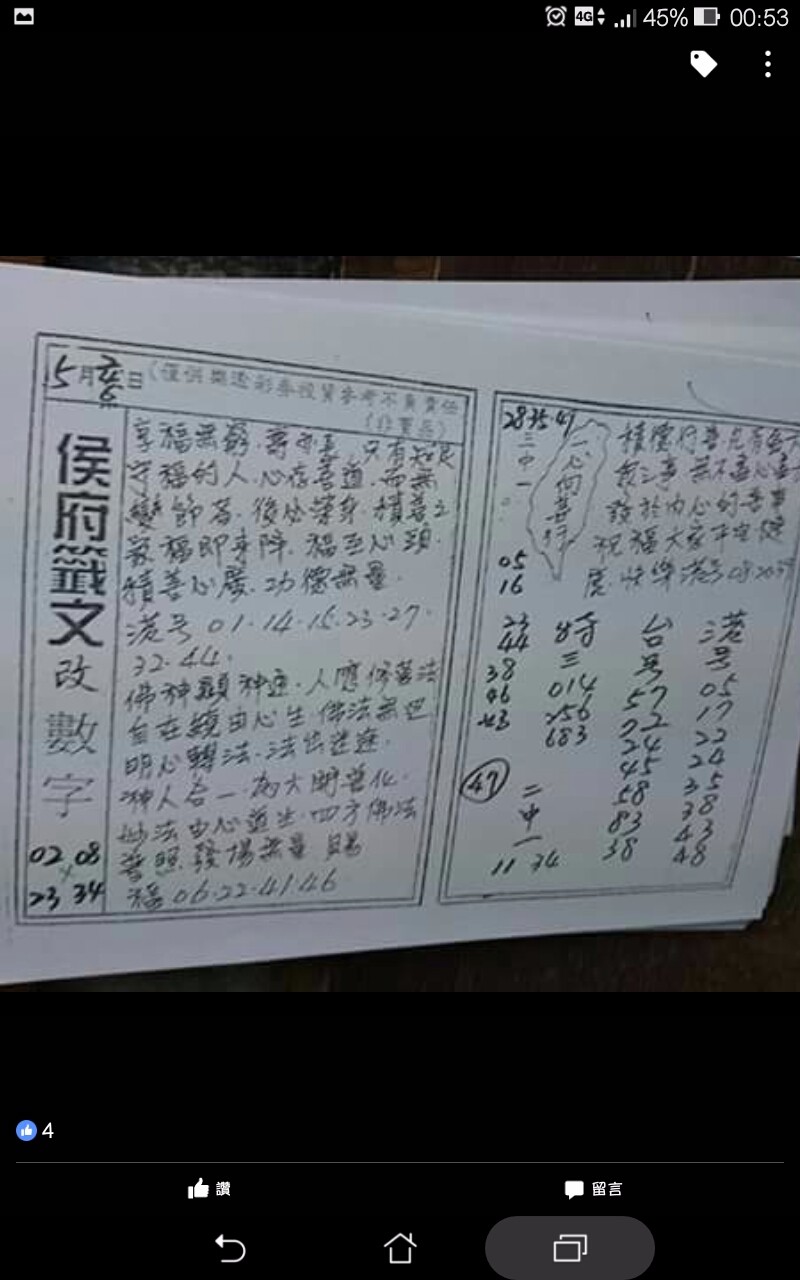 4G 45% 00:53
5月
日(僅供樂透彩券投資參考不負責任
(非賣品)
侯府籤文改數字
02 08
x
23 34
享福無窮.壽
只有知足
守福的人.心存善道.而無
變節者.後代榮身.積善之
家福即來降.福至心頭.
積善心廣.功德無量.
港号01.14.15.23.27.
32.44.
佛神顯神通.人應修善法
自在鏡由心生.佛法無邊
明心轉法.法出
神人合一.
大開善化.
妙法由心道生.四方佛法
普照發揚無量 賜
福06.22.41.46
28 35 47
三中一
05
16
一心向善行
積德行善凡有
之事 無不盡心
於內心的善事
祝福大家平安健
康 快樂 港号0820
23
44
38
46
43
特
三
014
256
683
台
号
57
72
24
45
58
83
38
港
号
05
17
22
24
35
38
43
48
47
二
中
一
11 34
4
讚
留言